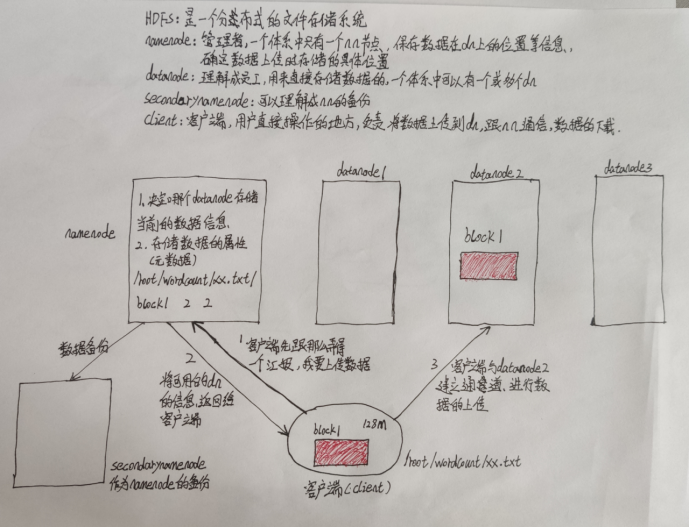 HDFS: 是一个分布式的文件存储系统
namenode: 管理者, 一个体系中只有一个nn节点, 保存数据在dn上的位置等信息,
确定数据上传时存储的具体位置
datanode: 理解成员工, 用来直接存储数据的, 一个体系中可以有一个或多个dn
secondarynamenode: 可以理解成nn的备份
client: 客户端, 用户直接操作的地方, 负责将数据上传到dn, 跟nn通信, 数据的下载.
datanode1
datanode2
datanode3
namenode
1、决定哪个datanode存储
当前的数据信息
2. 存储数据的属性
(元数据)
/root/wordcount/xx.txt/
block1 2 2
block1
数据备份
1 客户端先跟那么弄得
一个汇报, 我要上传数据
2
将可用的dn
的信息, 返回给
客户端
3 客户端与datanode2
建立通道, 进行数
据的上传
block1 128M
/root/wordcount/xx.txt
客户端(client)
secondarynamenode
作为namenode的备份